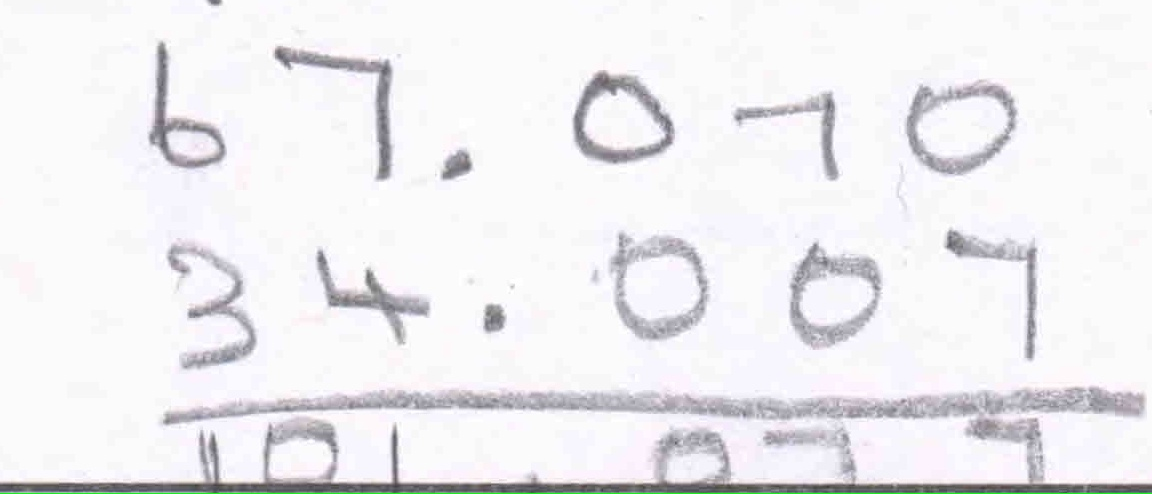 67.070
34.007
101.077